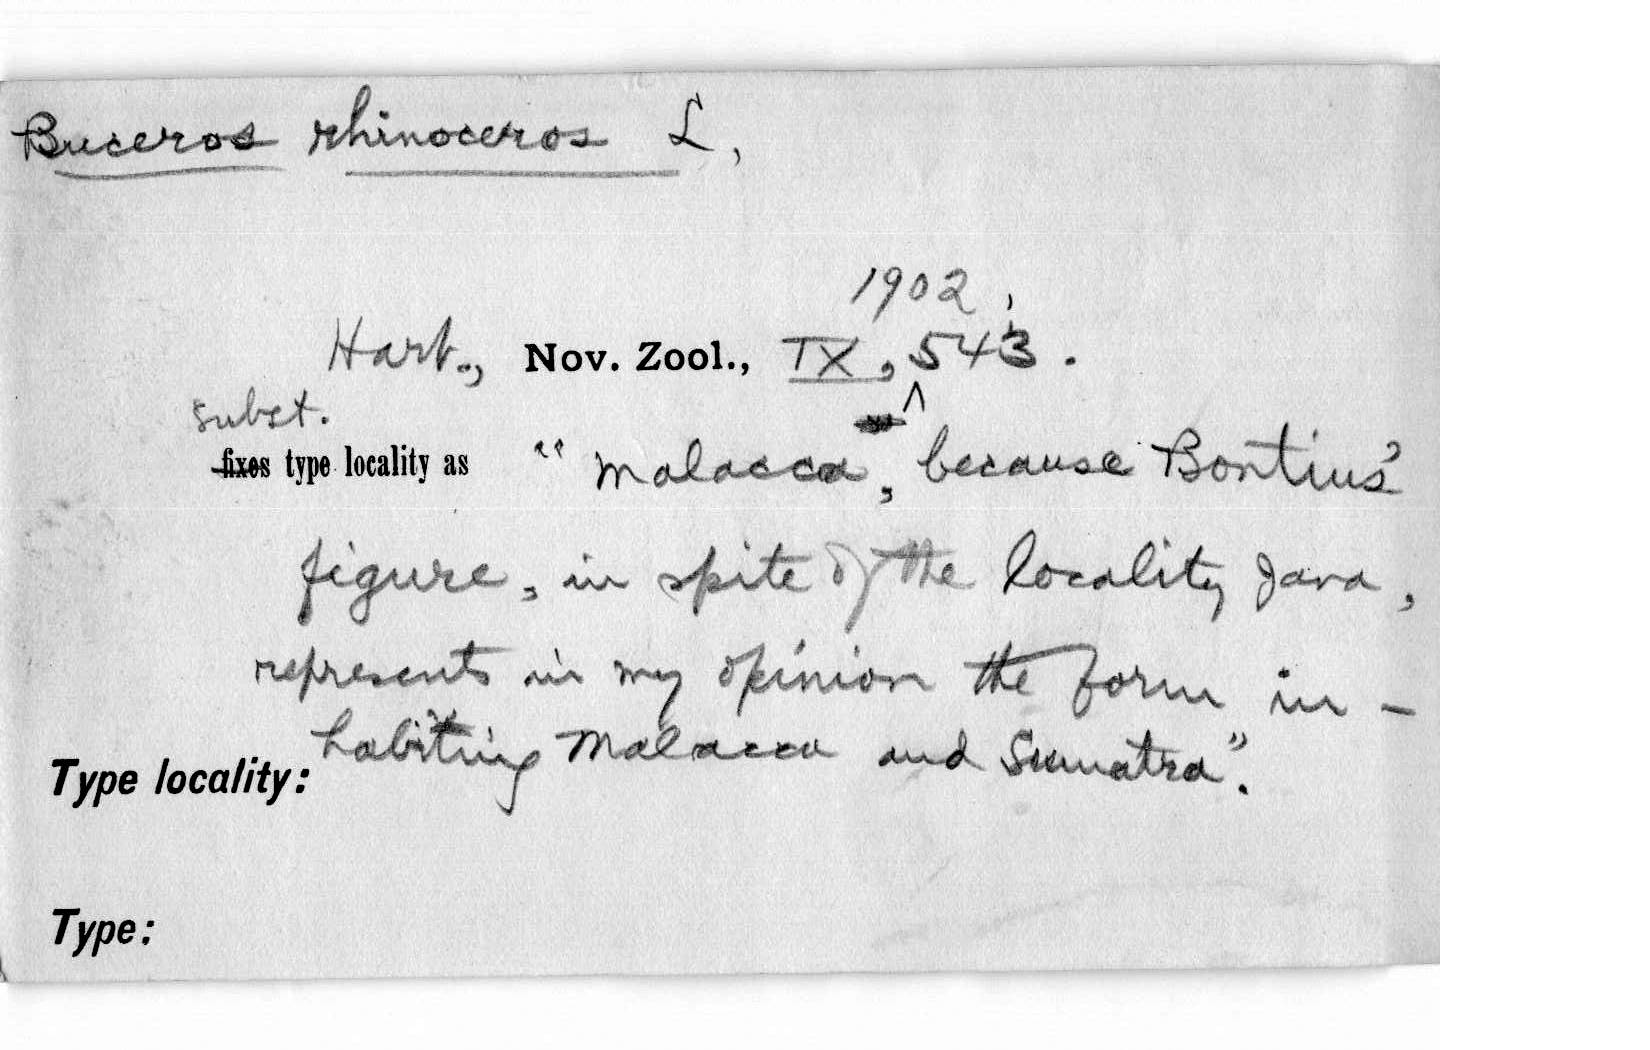 Buceros rhinoceros L,
1902,
Hart., Nov. Zool., IX, 543.
subst.
fixes type locality as "Malacca, because Bontius'
figure, in spite of the locality Java,
represents in my opinion the form in-
habiting Malacca and Sumatra".
Type locality:
Type: